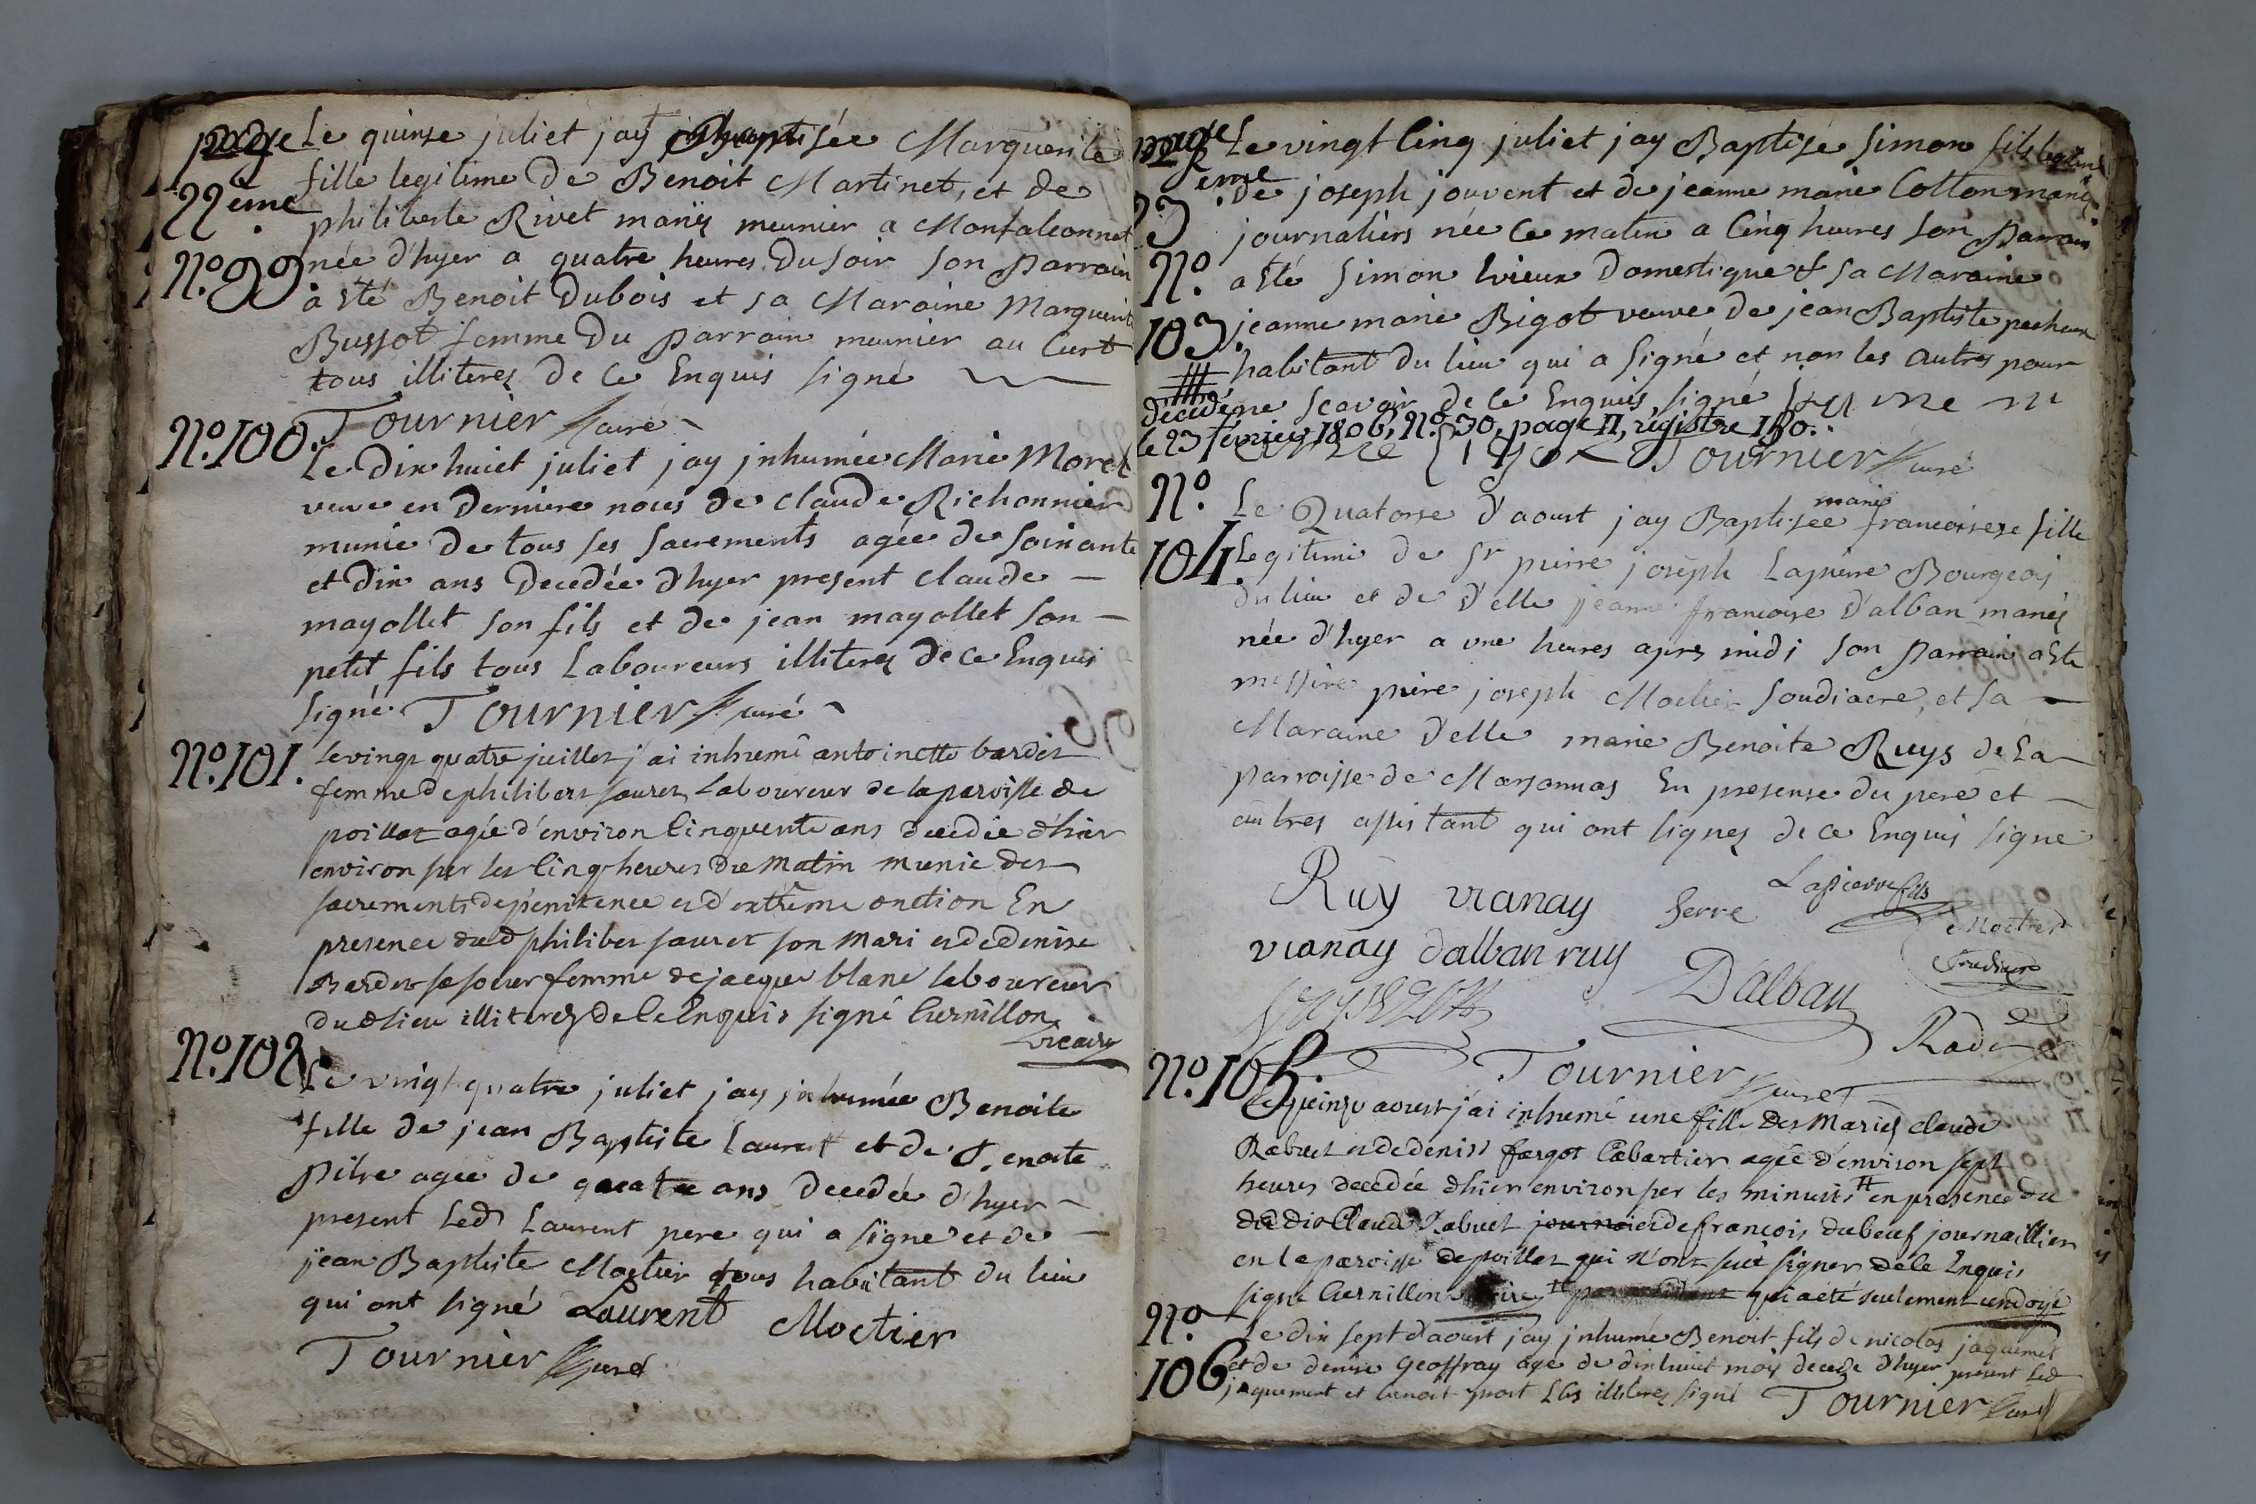 page
22ème
Nº.99.
Le quinse juliet jay Baptisée Marguerite
fille legitime De Benoit Martinet, et de
philiberte Rivet mariés meunier a Montfalconnet
née d'hyer a quatre heures Du soir son parrain
a été Benoit Dubois et sa Maraine Marguerite
Bussot femme Du parrain meunier au Curt
tous illiterez De Ce Enquis signé
Tournier curé
Nº.100.
Le Dix huict juliet jay jnhumée Marie Morel
veuve en Derniere noces De claude Richonnier
munie De tous ses sacrements agée de soixante
et Dix ans Decedée D'hyer present claude
mayollet son fils et De jean mayollet son
petit fils tous Laboureurs illiterez De Ce Enquis
signé Tournier curé
Nº.101.
Le vingt quatre juillet j'ai inhumé antoinette bardet
femme de philibert sauret Laboureur de la paroisse de
poillat agée d'environ Cinquente ans decedée d'hier
environ sur les Cinq heures Du Matin munie des
sacrements de pénitence et d'extrême onction En
presence dud philibert sauret son mari et de denise
Bardet sa soeur femme de jacque blanc laboureur
dud lieu illiterez de Ce Enquis signé Curnillon
vicaire
Nº.102.
Le vingt quatre juliet jay jnhumée Benoite
fille De jean Baptiste Laurent et De Benoite
Pitre agée De quatre ans Decedée D'hyer
present Led Laurent pere qui a signé et De
jean Baptiste Moctier tous habitant du lieu
qui ont signé Laurent Moctier
Tournier curé
page
23 eme
Nº.
103.
Le vingt Cinq juliet jay Baptisé simon fils legitime
De joseph jouvent et de jeanne marie Cotton mariés
journaliers née Ce matin a Cinq heures son parrain
a été simon vieux Domestique & sa Maraine
jeanne marie Bigot veuve De jean Baptiste pecheur
habitant Du lieu qui a signé et non les autres pour
ne scavoir De Ce Enquis signé
décédé
le 23 février 1806, Nº.30, page II, régistre 180.
Tournier curé
Nº.
104.
Le Quatorse d'aoust jay Baptisée marie francoise fille
Legitime De Sr pierre joseph Lapierre Bourgeois
Du lieu et De D'elle jeanne francoise D'alban mariés
née d'hyer a une heures apres midi son parrain a été
messire pierre joseph Moctier soudiacre, et sa
Maraine D'elle marie Benoite Ruys De La
parroisse De Marsonnas En presense Du pere et
autres assistant qui ont signez De Ce Enquis signe
Ruy vianay serre Lapierre fils
Moctier
vianay dalban ruy
Soudiacre
Dalban
Rade
Tournier curé
Nº.105.
Le quinze aoust j'ai inhumé une fille Des Mariés claude
Rabuel et de denise fargot Cabartier agée d'environ sept
heures decedée d'hier environ sur les minuits # en presence du
du dit Claude Rabuel et de françois dubeuf journaillier
en la paroisse de poillat qui n'ont sceu signer de Ce Enquis
signé Curnillon vicaire # qui a été seulement endoyé
Nº.
106.
Le Dix sept daoust jay jnhumé Benoit fils de nicolas jaquemet
et de denise Geoffray agé de dix huict mois decedé d'hyer present Led
jaquemet et benoit illiterez signé Tournier curé